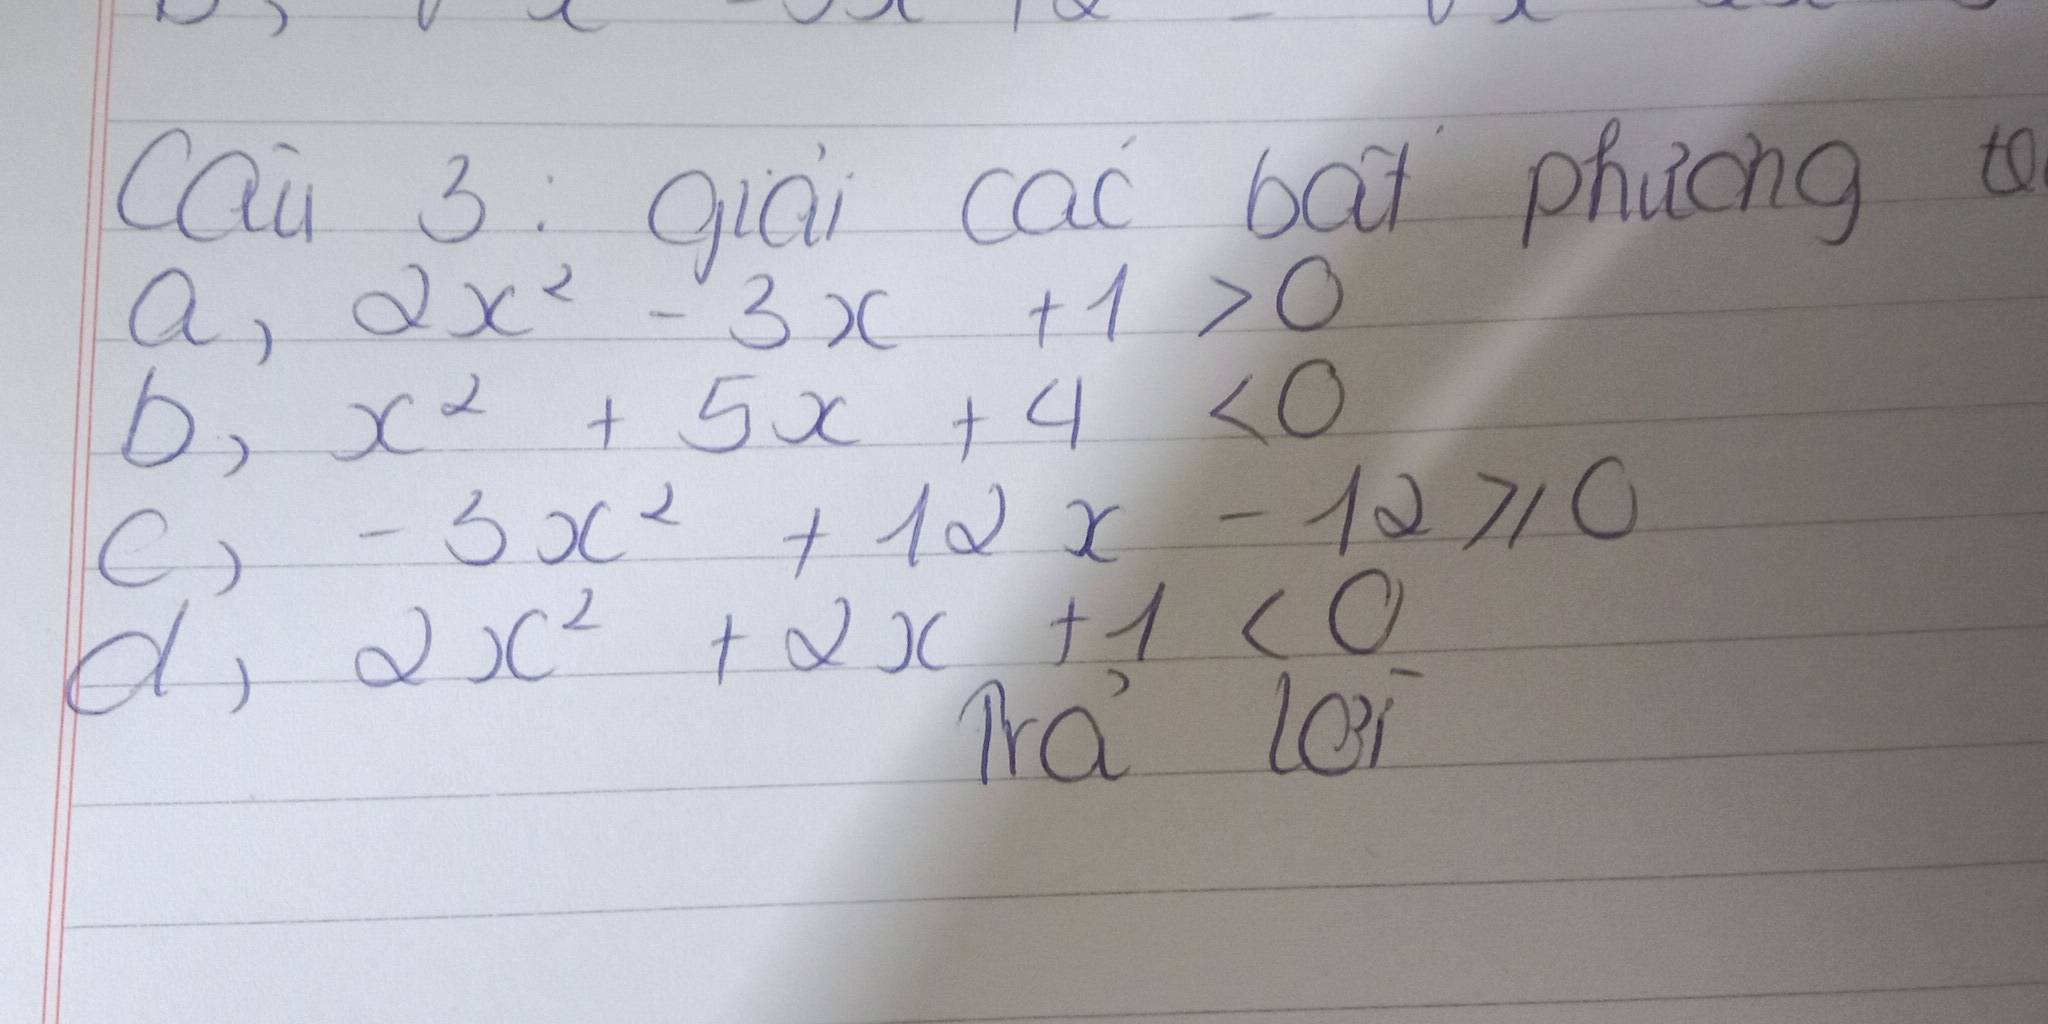 Câu 3: giải các bất phương
a, 2x² - 3x + 1 > 0
b, x² + 5x + 4 < 0
c, -3x² + 12x - 12 ⩾ 0
d, 2x² + 2x + 1 < 0
Trả lời